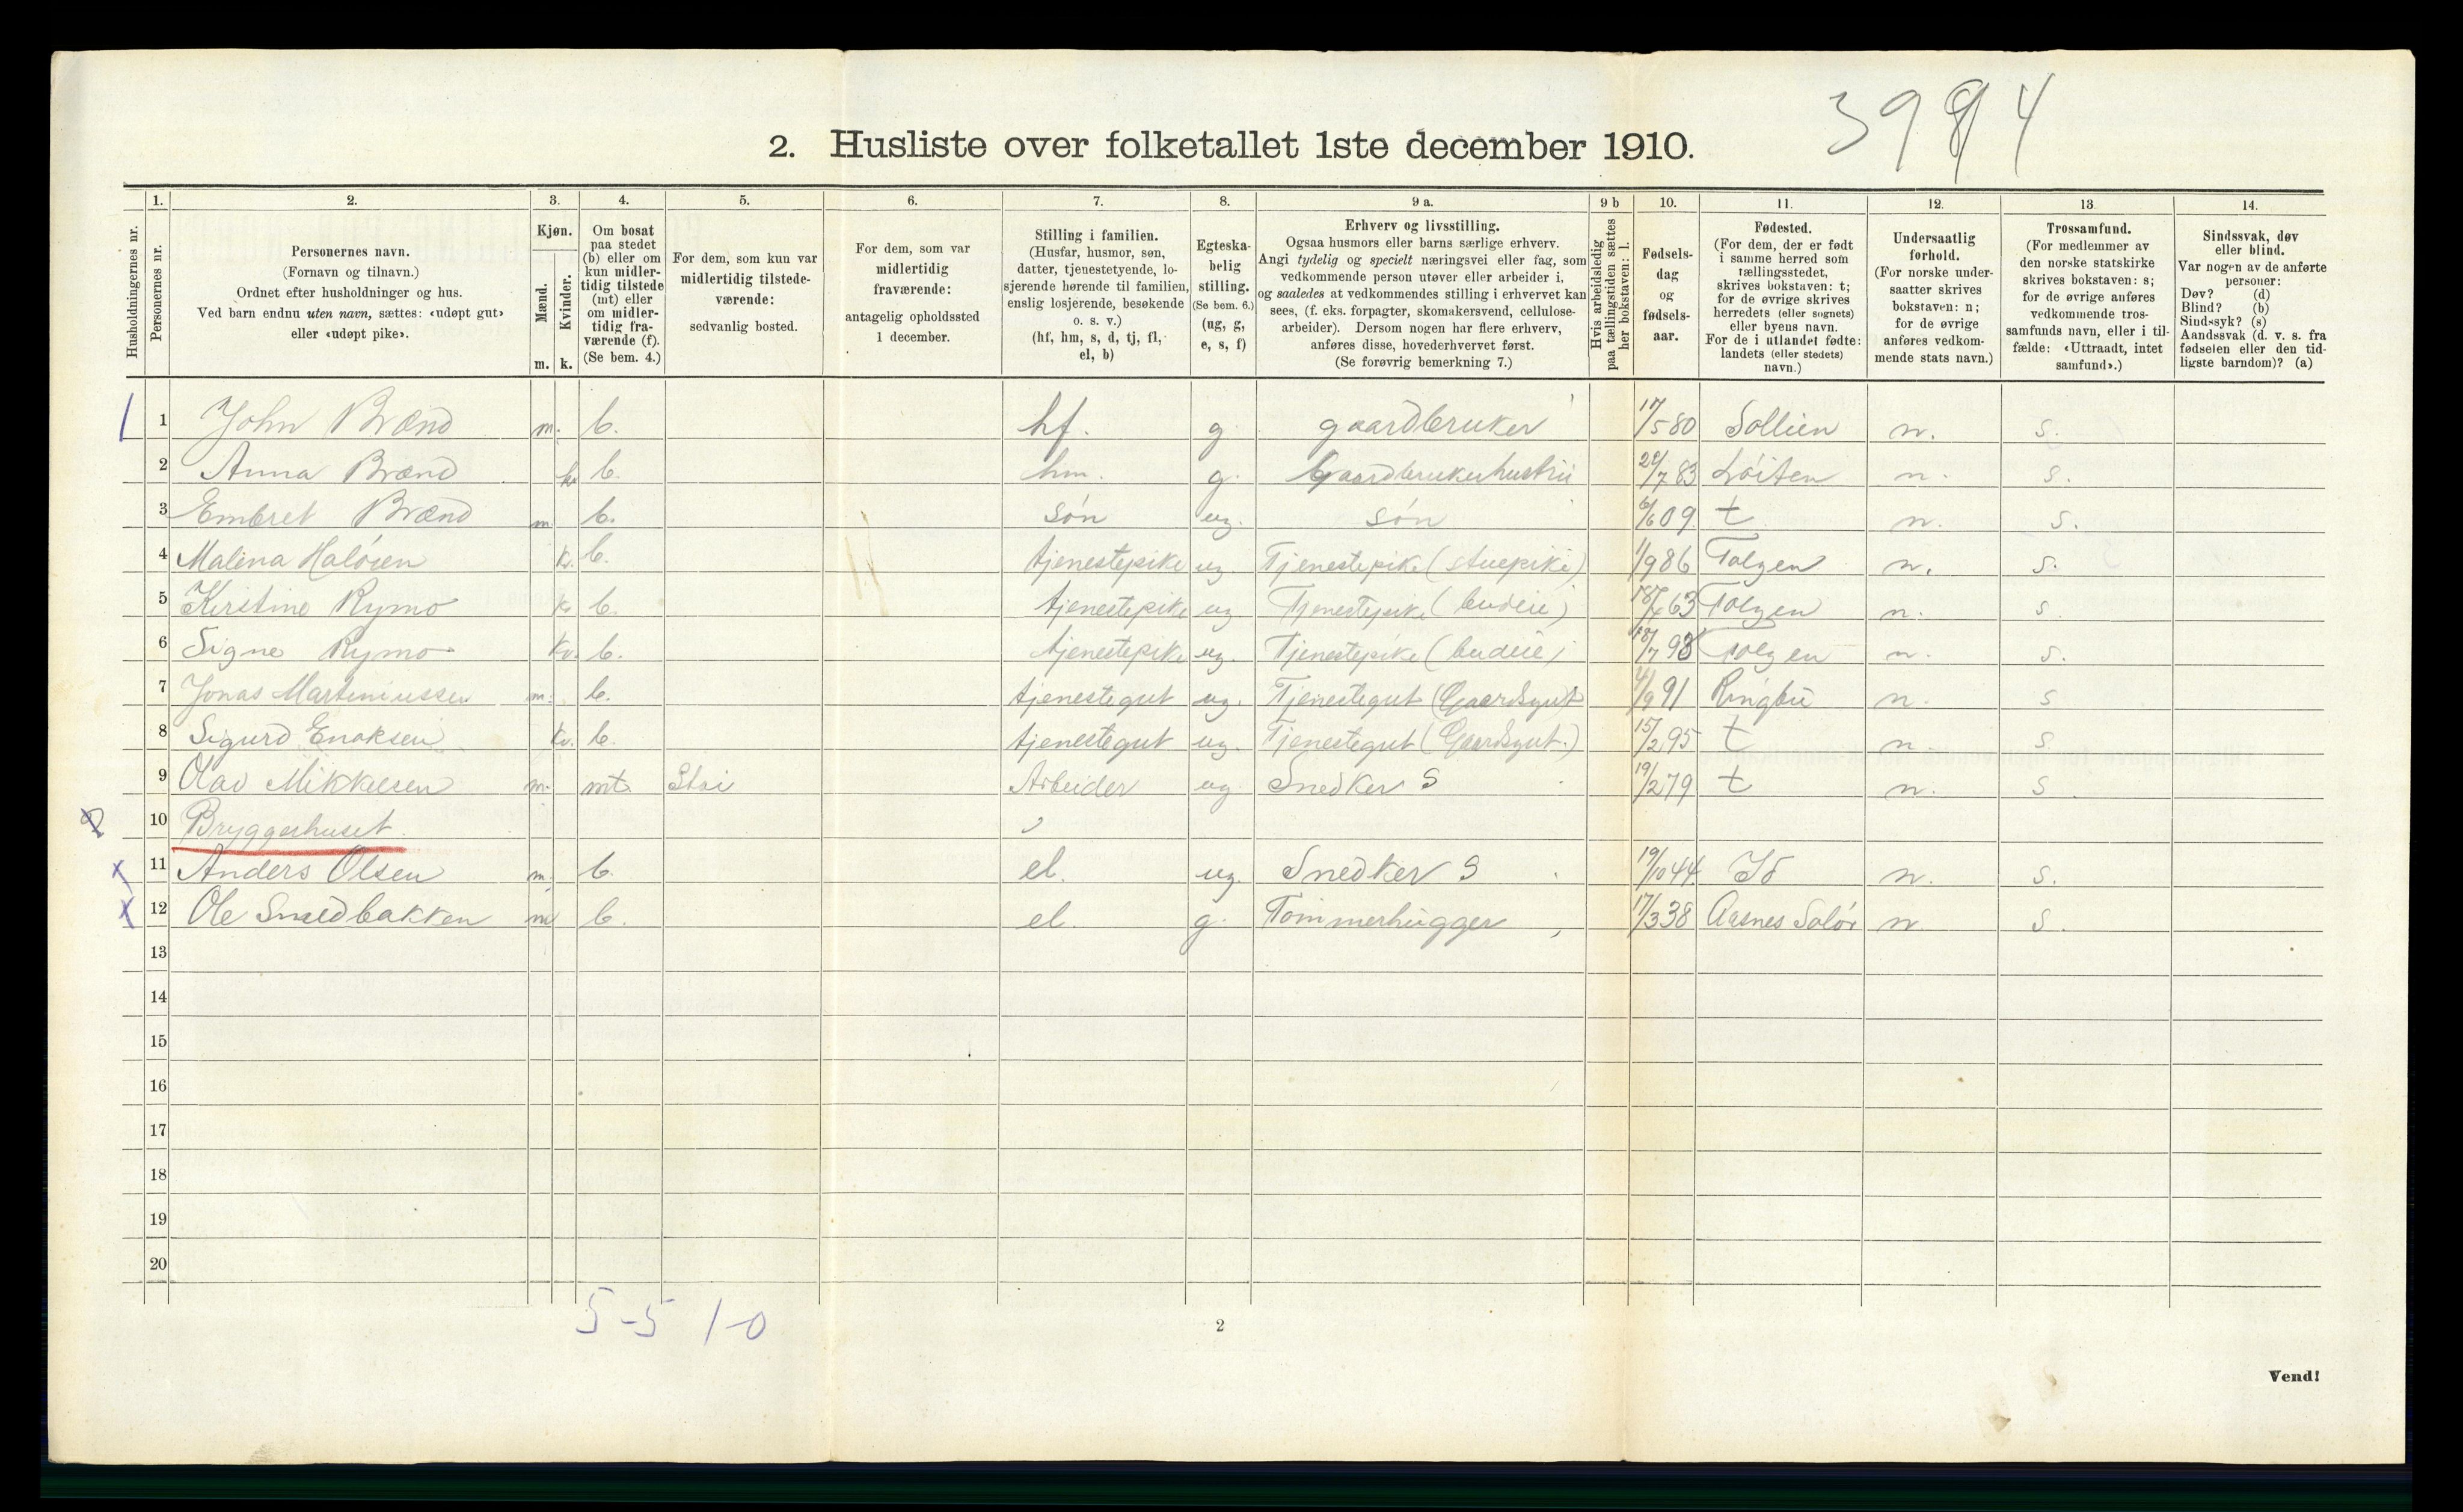 3984
2. Husliste over folketallet 1ste december 1910.
Husholdningernes nr.
1. Personernes nr.
2. Personernes navn. (Fornavn og tilnavn.) Ordnet efter husholdninger og hus. Ved barn endnu uten navn, sættes: «udøpt gut» eller «udøpt pike».
3. Kjøn. Mænd. m. Kvinder. k.
4. Om bosat paa stedet (b) eller om kun midlertidig tilstede (mt) eller om midlertidig fraværende (f). (Se bem. 4.)
5. For dem, som kun var midlertidig tilstedeværende: sedvanlig bosted.
6. For dem, som var midlertidig fraværende: antagelig opholdssted 1 december.
7. Stilling i familien. (Husfar, husmor, søn, datter, tjenestetyende, losjerende hørende til familien, enslig losjerende, besøkende o. s. v.) (hf, hm, s, d, tj, fl, el, b)
8. Egteskabelig stilling. (Se bem. 6.) (ug, g, e, s, f)
9 a. Erhverv og livsstilling. Ogsaa husmors eller barns særlige erhverv. Angi tydelig og specielt næringsvei eller fag, som vedkommende person utøver eller arbeider i, og saaledes at vedkommendes stilling i erhvervet kan sees, (f. eks. forpagter, skomakersvend, cellulosearbeider). Dersom nogen har flere erhverv, anføres disse, hovederhvervet først. (Se forøvrig bemerkning 7.)
9 b Hvis arbeidsledig paa tællingstiden sættes her bokstaven: l.
10. Fødselsdag og fødselsaar.
11. Fødested. (For dem, der er født i samme herred som tællingsstedet, skrives bokstaven: t; for de øvrige skrives herredets (eller sognets) eller byens navn. For de i utlandet fødte: landets (eller stedets) navn.)
12. Undersaatlig forhold. (For norske undersaatter skrives bokstaven: n; for de øvrige anføres vedkommende stats navn.)
13. Trossamfund. (For medlemmer av den norske statskirke skrives bokstaven: s; for de øvrige anføres vedkommende trossamfunds navn, eller i tilfælde: «Uttraadt, intet samfund».)
14. Sindssvak, døv eller blind. Var nogen av de anførte personer: Døv? (d) Blind? (b) Sindssyk? (s) Aandssvak (d. v. s. fra fødselen eller den tidligste barndom)? (a)
1 John Brænd m. b. hf. g gaardbruker 17/5 80 Sollien n. s.
2 Anna Brænd k b. hm. g. Gaardbrukerhustru 7 83 Løiten n. s.
3 Embret Brænd m b. søn ug. søn 6/6 09 t n. s.
4 Malena Haløien k. b. tjenestepike ug. Tjenestepike (stuepike) 1/9 86 Tolgen n. s.
5 Kirstine Rymo k b. tjenestepike ug Tjenestepike (budeie) 63 Tolgen n. s
6 Signe Rymo kv. b. tjenestepike ug. Tjenestepike (budeie) 18/7 98 Tolgen n. s.
7 Jonas Marteniussen m. b. tjenestegut ug. Tjenestegut (Gaardsgut 4/9 91 Ringbu n. s
8 Sigurd Enoksen kv. b. tjenestegut ug. Tjenestegut (Gaardsgut.) 15/2 95 t n s
9 Olav Mikkelsen m. mt Stai Arbeider ug Snedker S 19/2 79 t n. s
10 Bryggerhuset.
11 Anders Olsen m. b. el. ug. Snedker S 19/10 44. Id n. s.
12 Ole Smedbakken m b. el. g. Tømmerhugger 17/3 38 Aasnes Solør n s.
13
14
15
16
17
18
19
20
5-5 1-0
2
Vend!